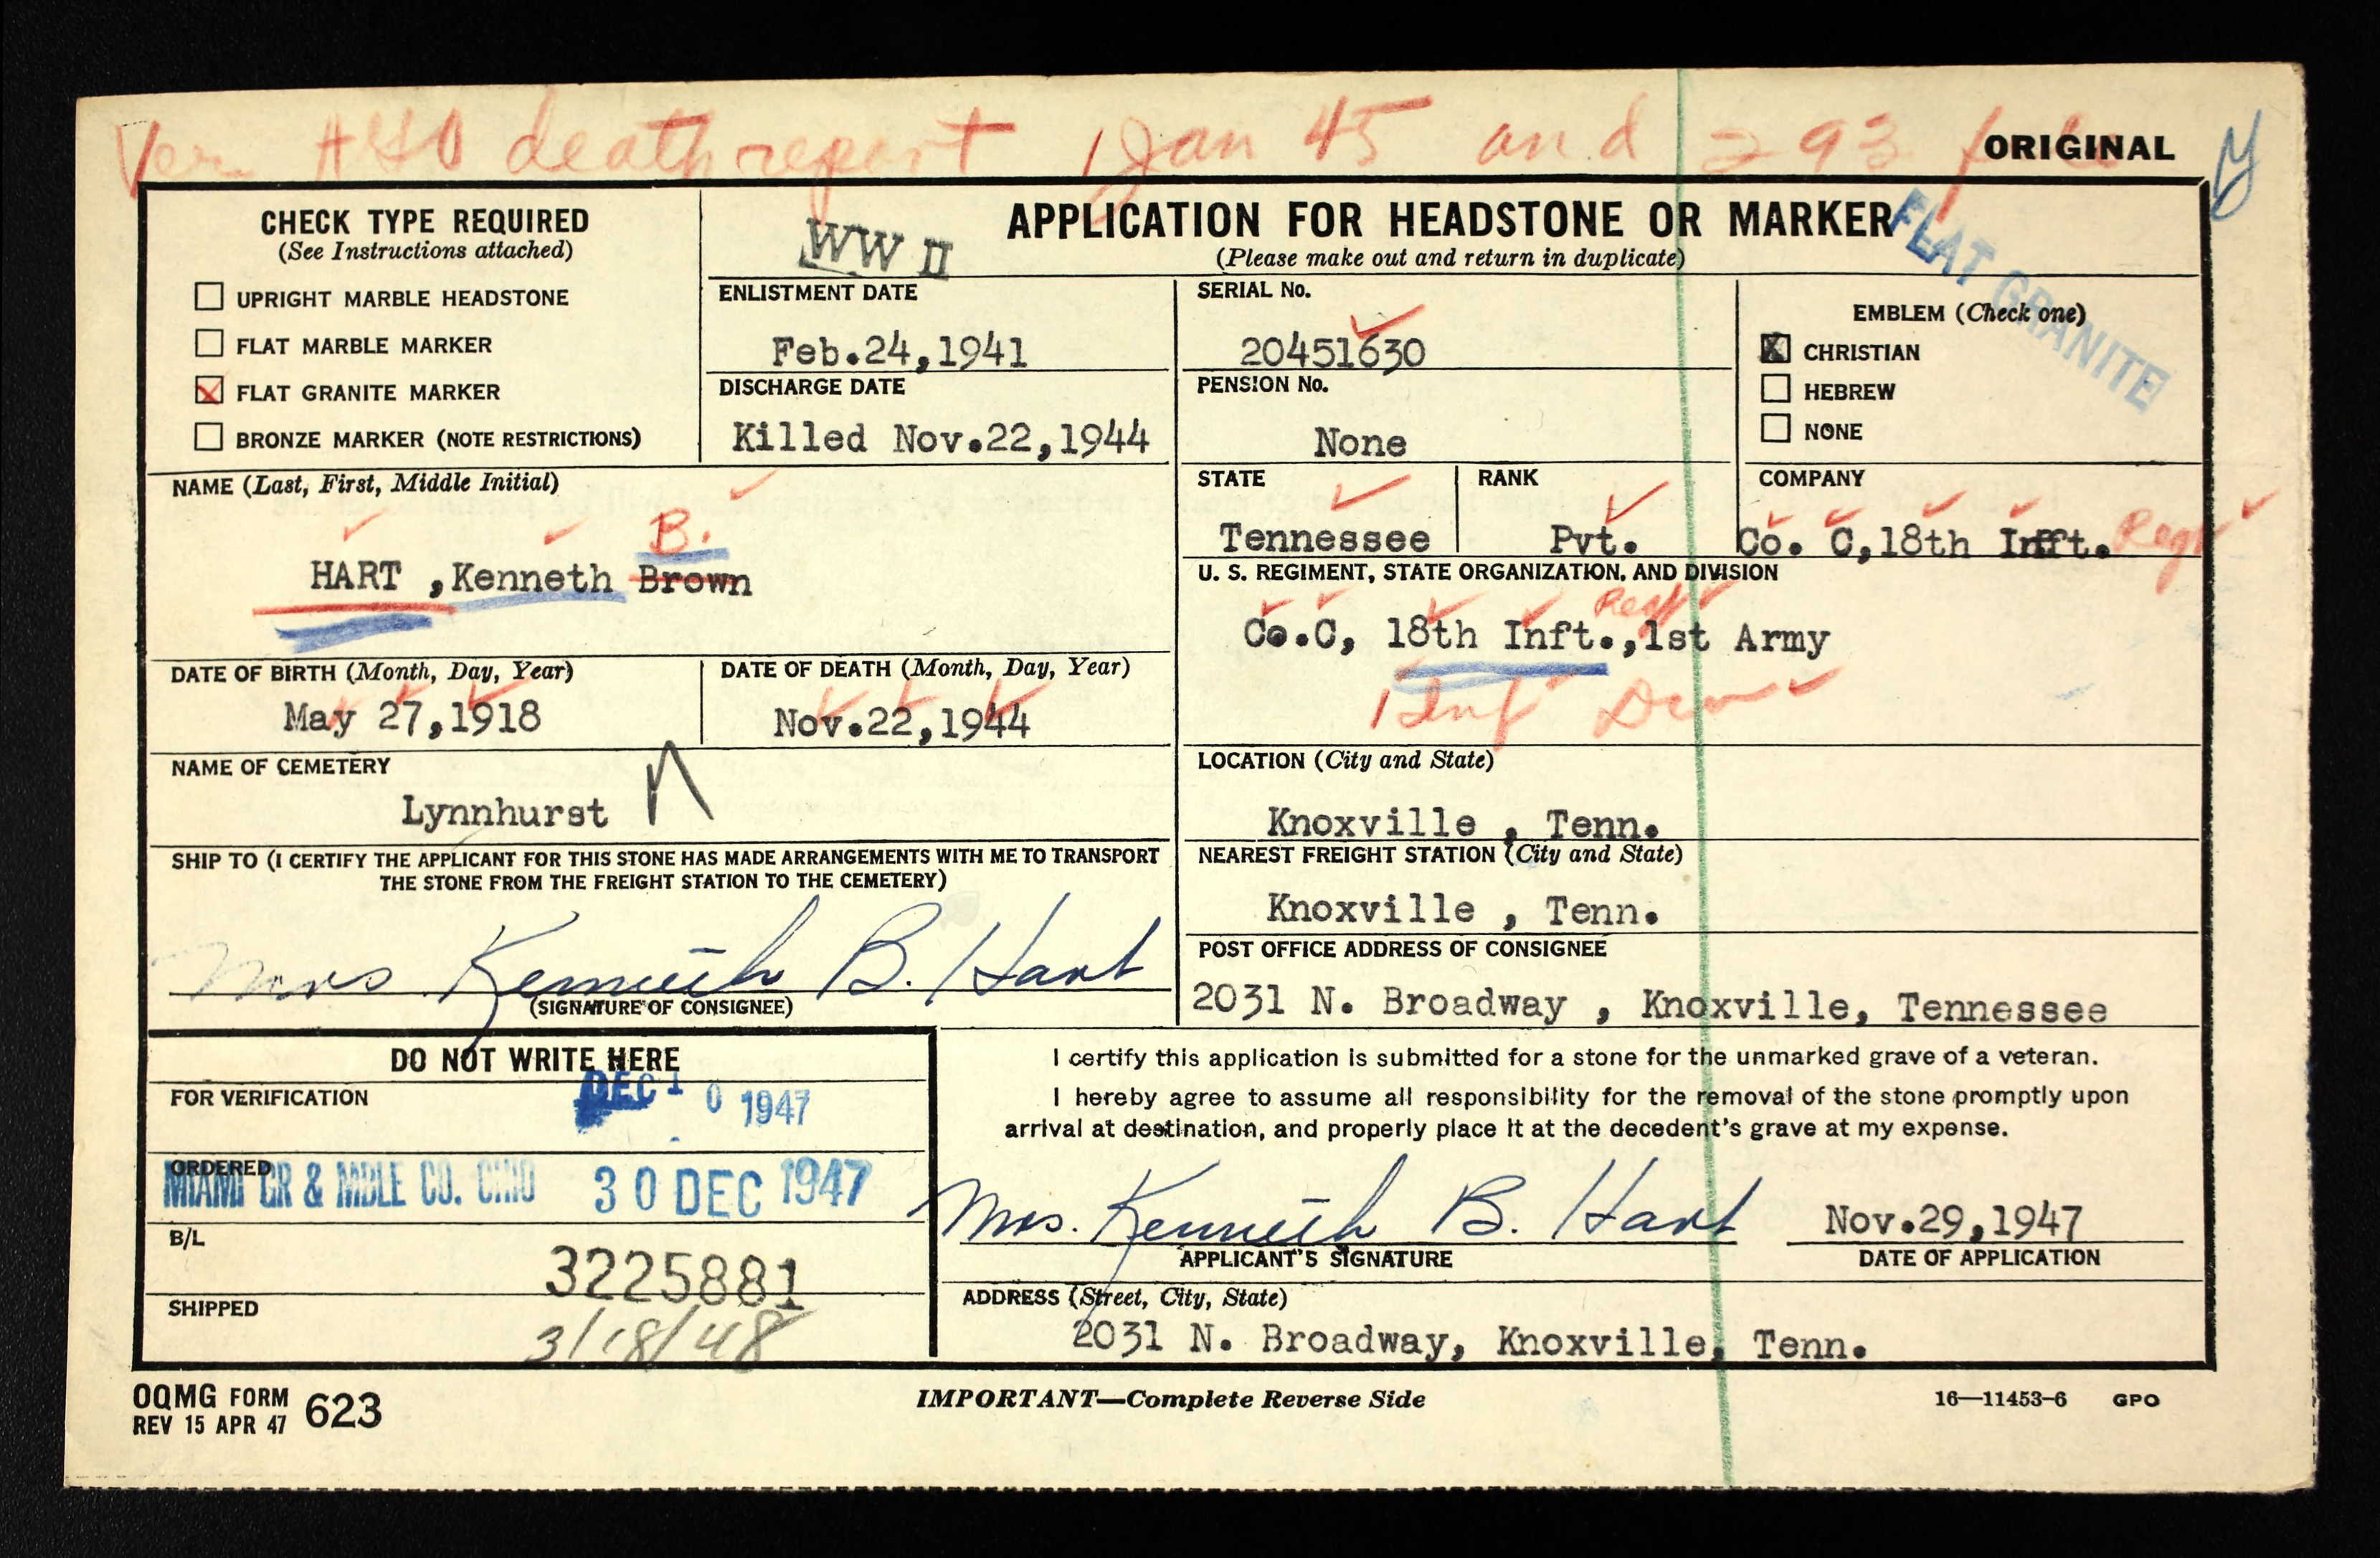 Ver AGO death report 1 Jan 45 and 293 file
ORIGINAL
y
CHECK TYPE REQUIRED
(See Instructions attached)
UPRIGHT MARBLE HEADSTONE
FLAT MARBLE MARKER
X FLAT GRANITE MARKER
BRONZE MARKER (NOTE RESTRICTIONS)
WW II
APPLICATION FOR HEADSTONE OR MARKER
(Please make out and return in duplicate)
FLAT GRANITE
ENLISTMENT DATE
Feb.24,1941
DISCHARGE DATE
Killed Nov.22,1944
SERIAL No.
20451630
PENSION No.
None
EMBLEM (Check one)
X CHRISTIAN
HEBREW
NONE
NAME (Last, First, Middle Initial)
B.
HART ,Kenneth Brown
STATE
Tennessee
RANK
Pvt.
COMPANY
Co. C,18th Infft. Regt
U. S. REGIMENT, STATE ORGANIZATION, AND DIVISION
Regt
Co.C, 18th Inft.,1st Army
1 Inf Div
DATE OF BIRTH (Month, Day, Year)
May 27,1918
DATE OF DEATH (Month, Day, Year)
Nov.22,1944
NAME OF CEMETERY
Lynnhurst
LOCATION (City and State)
Knoxville , Tenn.
SHIP TO (I CERTIFY THE APPLICANT FOR THIS STONE HAS MADE ARRANGEMENTS WITH ME TO TRANSPORT
THE STONE FROM THE FREIGHT STATION TO THE CEMETERY)
Mrs Kenneth B. Hart
(SIGNATURE OF CONSIGNEE)
NEAREST FREIGHT STATION (City and State)
Knoxville , Tenn.
POST OFFICE ADDRESS OF CONSIGNEE
2031 N. Broadway , Knoxville, Tennessee
DO NOT WRITE HERE
FOR VERIFICATION
DEC 1 0 1947
ORDERED
MIAMI GR & MBLE CO. OHIO 30 DEC 1947
B/L
3225881
SHIPPED
3/18/48
I certify this application is submitted for a stone for the unmarked grave of a veteran.
I hereby agree to assume all responsibility for the removal of the stone promptly upon
arrival at destination, and properly place it at the decedent's grave at my expense.
Mrs. Kenneth B. Hart
APPLICANT'S SIGNATURE
Nov.29,1947
DATE OF APPLICATION
ADDRESS (Street, City, State)
2031 N. Broadway, Knoxville, Tenn.
OQMG FORM 623
REV 15 APR 47
IMPORTANT—Complete Reverse Side
16—11453-6 GPO